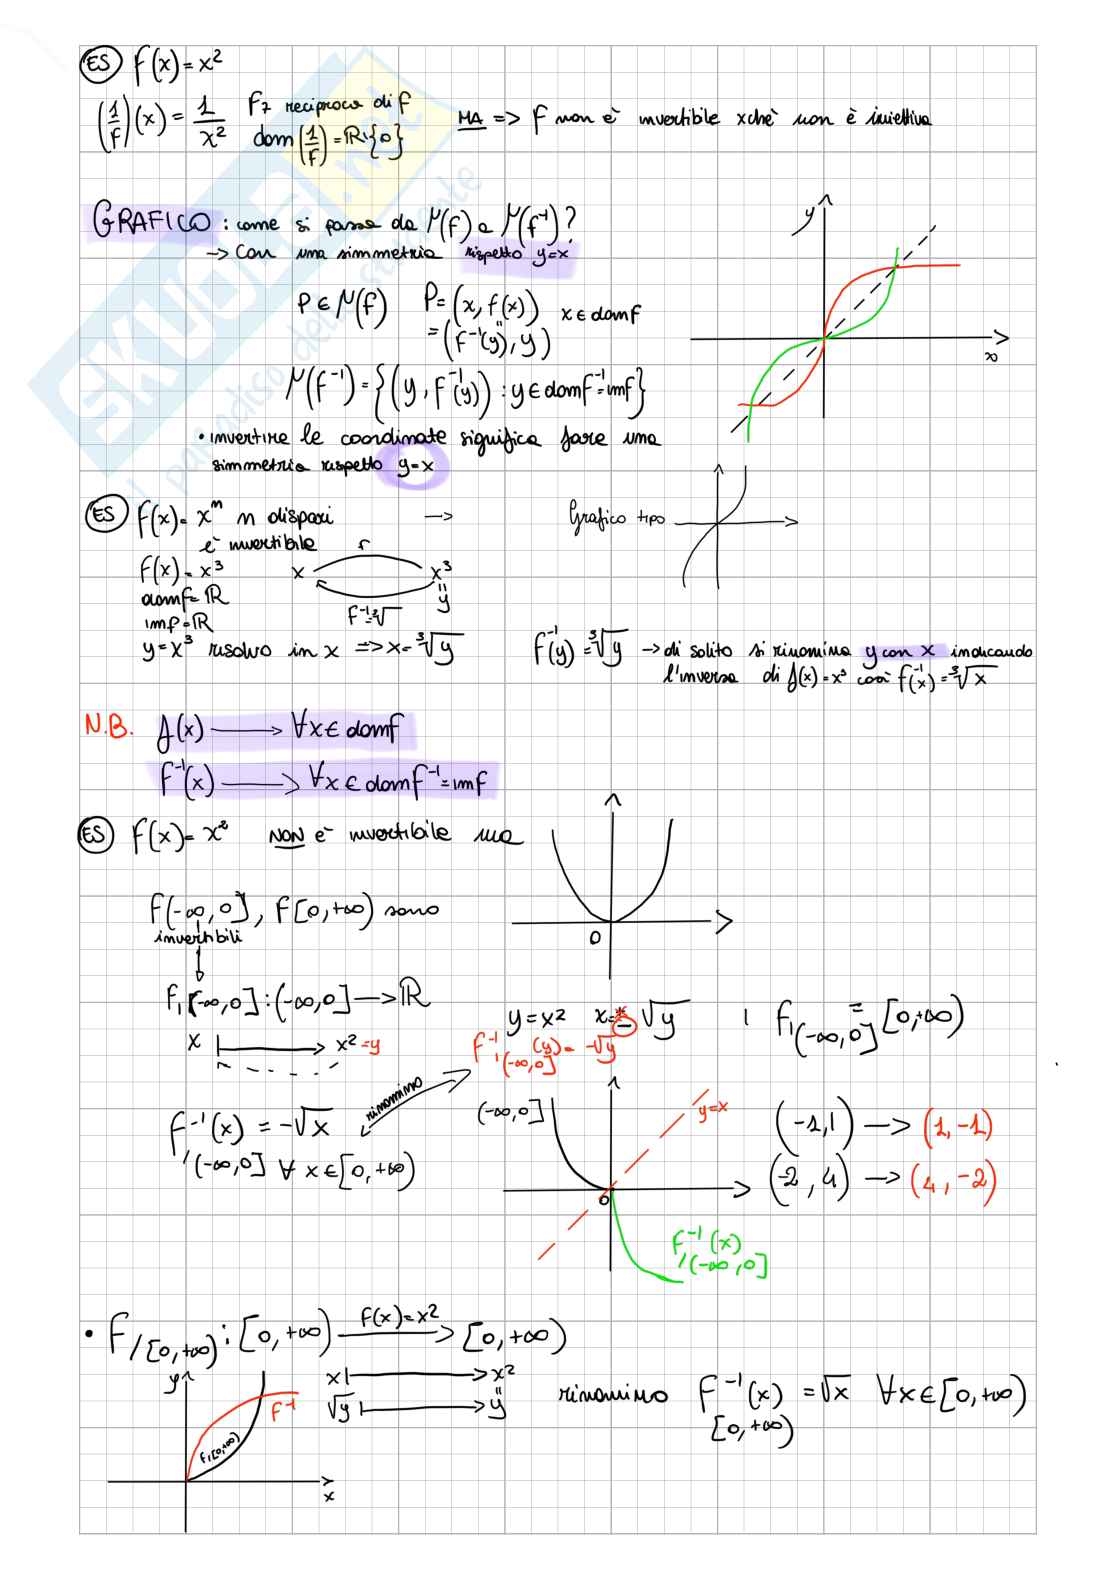 ES f(x) = x²
(1/f)(x) = 1/x² F² reciproca di f MA => f non è invertibile xchè non è iniettiva
dom(1/f) = ℝ\{0}
GRAFICO : come si passa da Γ(f) a Γ(f⁻¹)?
→ Con una simmetria rispetto y=x
P ∈ Γ(f) P = (x, f(x)) x ∈ domf
= (f⁻¹(y), y)
Γ(f⁻¹) = {(y, f⁻¹(y)) : y ∈ domf⁻¹ = imf}
• invertire le coordinate significa fare una
simmetria rispetto y=x
y
x
ES f(x) = xⁿ n dispari → Grafico tipo
è invertibile
f(x) = x³
domf = ℝ
imf = ℝ
f
x x³
" y
f⁻¹ = ³√
y = x³ risolvo in x => x = ³√y f⁻¹(y) = ³√y → di solito si rinomina y con x indicando
l'inversa di f(x) = x³ così f⁻¹(x) = ³√x
N.B. f(x) → ∀x ∈ domf
f⁻¹(x) → ∀x ∈ domf⁻¹ = imf
ES f(x) = x² NON è invertibile ma
f(-∞, 0] , f[0, +∞) sono
invertibili
0
f|(-∞, 0] : (-∞, 0] → ℝ
x ↦ x² = y
y = x² x = ± √y | f|(-∞, 0] = [0, +∞)
f⁻¹|(-∞, 0] (y) = -√y
rinomino
f⁻¹(x) = -√x
/(-∞, 0] ∀ x ∈ [0, +∞)
(-∞, 0]
y=x
0
f⁻¹(x)
/(-∞, 0]
(-1, 1) → (1, -1)
(-2, 4) → (4, -2)
• f/[0, +∞) : [0, +∞) f(x) = x² → [0, +∞)
x ↦ x²
"
√y ↦ y
rinomino f⁻¹(x) = √x ∀x ∈ [0, +∞)
[0, +∞)
y
f⁻¹
f|[0, +∞)
x
SKUOLA.net
il paradiso dello studente